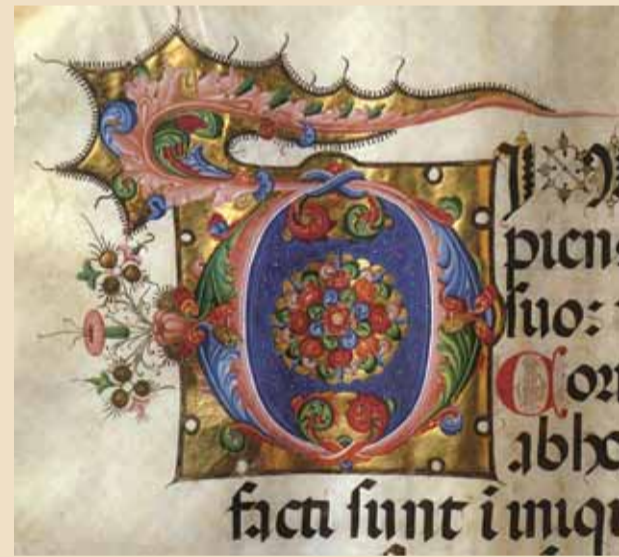 DIX
piens
suo:
Cor
abho
facti sunt i iniqu